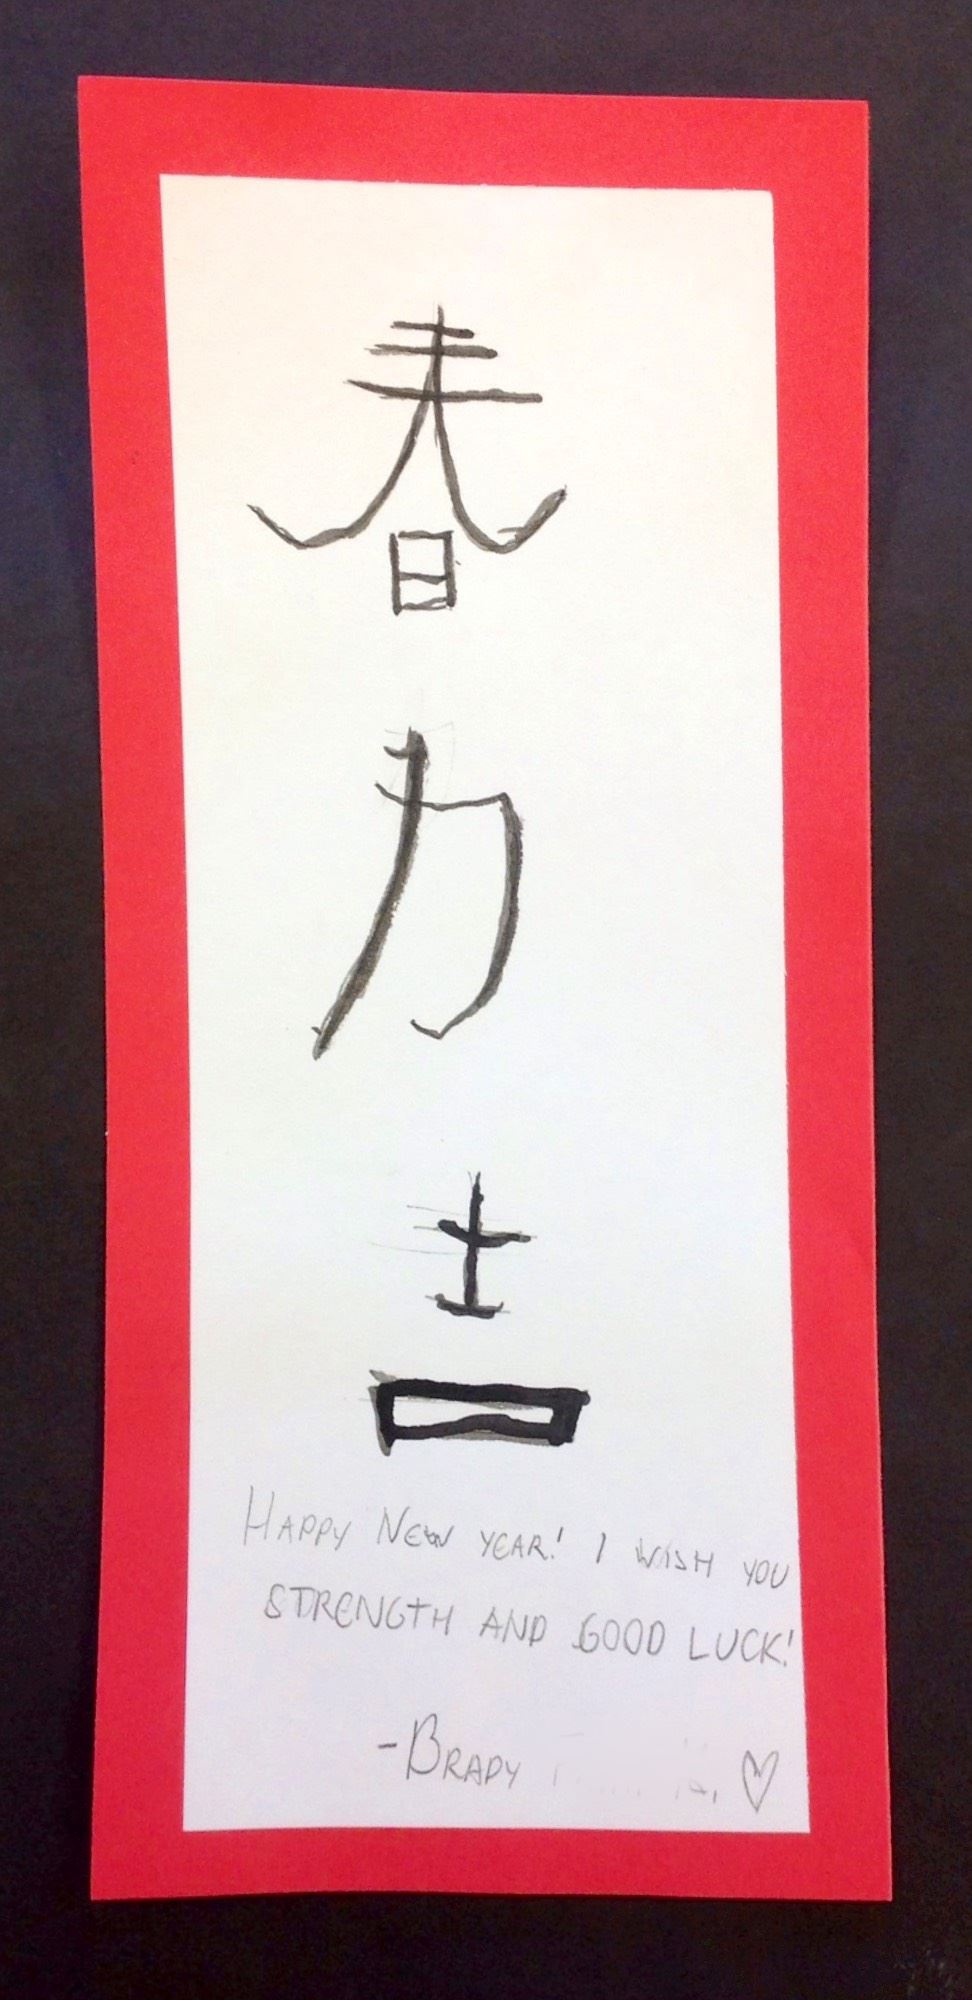 春
力
吉
HAPPY NEW YEAR! I WISH YOU
STRENGTH AND GOOD LUCK!
-BRADY ♡